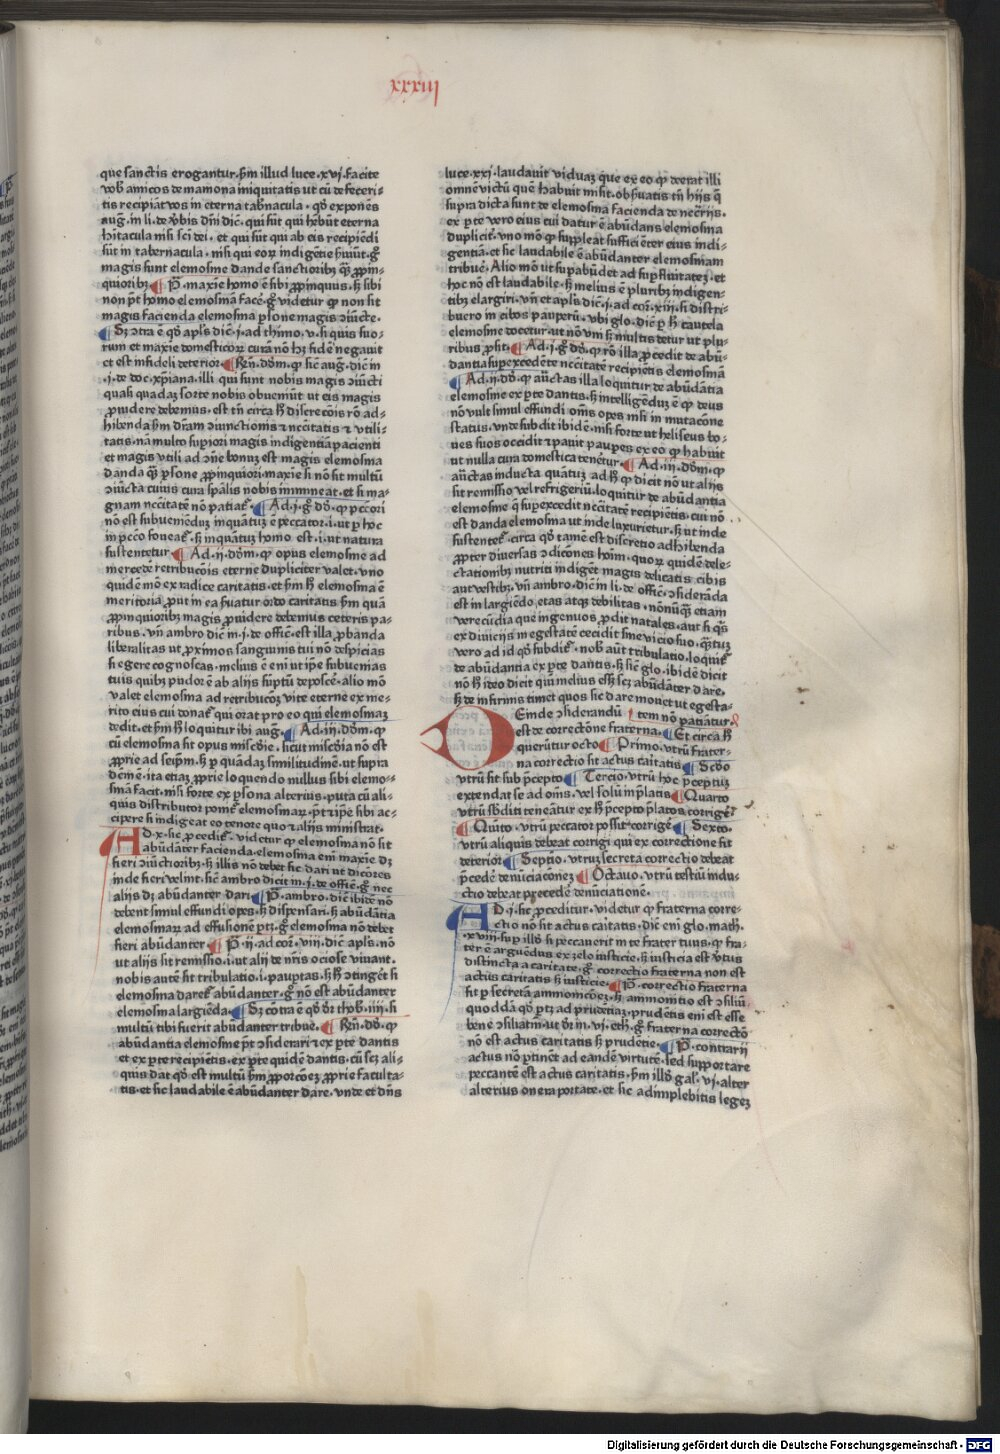 xxxiii
que sanctis erogantur. ẜm illud luce. xvj. Facite
vob̄ amicos de mamona iniquitatis ut cū defeceri⸗
tis recipiāt vos in eterna tab̄nacula. qd̄ exponēs
aug̃. in li. de v̄bis dn̄i dic̄. qui sūt qui hēbūt eterna
h̄itacula nisi sc̄i dei. et qui sūt qui ab eis recipiēdi
sūt in tabernacula. nisi qui eoꝝ indigētie s̄uiūt. g̊
magis sunt elemosine dande sanctioribꝫ qᷓꝫ ꝓpin⸗
quioribꝫ ¶ P̄. maxīe homo ē sibi ꝓpinquus. sꝫ sibi
non pn̄t homo elemosinā facē. g̊ videtur ꝙ non sit
magis facienda elemosina ꝑsone magis ↄiūcte.
¶ Sꝫ ↄtra ē qd̄ apl̄s dic̄. j. ad thimo. v. si quis suo⸗
rum et maxie domesticoꝝ curā nō hꝫ fidē negauit
et est infideli deterior ¶ Rn̄. dd̄m. ꝙ sic̄ aug̃. dic̄ in
j. de doc. xp̄iana. illi qui sunt nobis magis ↄiūcti
quasi quadaꝫ sorte nobis obueniūt ut eis magis
ꝓuidere debemus. est tn̄ circa h̄ discrecōis rō ad⸗
hibenda ẜm dr̄am ↄiunctionis ⁊ nc̄citatis ⁊ utili⸗
tatis. nā multo sāctiori magis indigentiā pacienti
et magis utili ad cōe bonuꝫ est magis elemosina
danda qᷓꝫ ꝑsone ꝓpinquiori. maxīe si nō sit multū
ↄiūcta cuius cura sp̄alis nobis immineat. et si ma⸗
gnam nc̄citatē nō patiat᷑. ¶ Ad. j. g̊ dd̄. ꝙ pc̄cōri
nō est subueniēduꝫ inquātuꝫ ē peccator. i. ut ꝑ hoc
in pc̄co foueat᷑. sꝫ inquātuꝫ homo est. i. ut natura
sustentetur ¶ Ad. ij. dd̄m. ꝙ opus elemosine ad
mercedē retribucōis eterne dupliciter valet. vno
quidē mō ex radice caritatis. et ẜm h̄ elemosina ē
meritoria ꝓut in ea s̄uatur ordo caritatis ẜm quā
ꝓpinquioribꝫ magis ꝓuidere debemus ceteris pa⸗
ribus. vn̄ ambro dic̄ in. j. de offic̄. est illa ꝓbanda
liberalitas ut ꝓximos sanguinis tui nō despicias
si egere cognoscas. melius ē eni ut ip̄e subuenias
tuis quibꝫ pudor ē ab alijs sūptū deposcē. alio mō
valet elemosina ad retribucōꝫ vite eterne ex me⸗
rito eius cui donat᷑ qui orat pro eo qui elemosinaꝫ
dedit. et ẜm h̄ loquitur ibi aug̃. ¶ Ad. iij. dd̄m. ꝙ
cū elemosina sit opus misc̄die. sicut misc̄dia nō est
ꝓprie ad seip̄m. sꝫ ꝑ quādaꝫ similitudinē. ut supra
dc̄m ē. ita etiaꝫ ꝓprie loquendo nullus sibi elemo⸗
sinā facit. nisi forte ex ꝑsona alterius. puta cū ali⸗
quis distributor ponit᷑ elemosinaꝝ. pn̄t ⁊ ip̄e sibi ac⸗
cipere si indigeat eo tenore quo ⁊ alijs ministrat.
AD. x. sic ꝓcedit᷑. videtur ꝙ elemosina nō sit
abūdāter facienda. elemosina eni maxie dꝫ
fieri ↄiūctioribꝫ. sꝫ illis nō debet sic dari ut dic̄ores
inde fieri velint. sic̄ ambro dicit in. j. de offic̄. g̊ nec
alijs dꝫ abūdanter dari ¶ P̄. ambro. dic̄ ibidē nō
debent simul effundi opes. sꝫ dispensari. sꝫ abūdātia
elemosinaꝝ ad effusionē ꝑtꝫ. g̊ elemosina nō debet
fieri abūdanter ¶ P̄. ij. ad cor. viij. dic̄ apl̄s. nō
ut alijs sit remissio. i. ut alij de nr̄is ociose viuant.
nobis autē sit tribulatio. i. paupertas. sꝫ h̄ ↄtingēt si
elemosina daret᷑ abūdanter. g̊ nō est abūdanter
elemosina largiēda. ¶ Sꝫ cōtra ē qd̄ dr̄ thob. iiij. si
multū tibi fuerit abūdanter tribue. ¶ Rn̄. dd̄. ꝙ
abūdantia elemosine pn̄t ↄsiderari ⁊ ex ꝑte dantis
et ex ꝑte recipiētis. ex ꝑte quidē dantis. cū scꝫ ali⸗
quis dat qd̄ est multū ẜm ꝓporcōeꝫ ꝓprie faculta⸗
tis. et sic laudabile ē abūdanter dare. vnde et dn̄s
luce. xxj. laudauit viduaꝫ que ex eo ꝙ deerat illi
omnē victū quē habuit misit. obs̄uatis tn̄ hijs q̄
supra dicta sunt de elemosina facienda de nec̄rijs.
ex ꝑte vero eius cui datur ē abūdans elemosina
duplicit᷑. vno mō ꝙ suppleat sufficiēter eius indi⸗
gentiā. et sic laudabile ē abūdanter elemosinam
tribuē. Alio mō ut suꝑabūdet ad suꝑfluitatē. et
hoc nō est laudabile. sꝫ melius ē pluribꝫ indigen⸗
tibꝫ elargiri. vn̄ et apl̄s dic̄. j. ad cor. xiij. si distri⸗
buero in cibos pauperū. vbi glo. dic̄ ꝑ h̄ cautela
elemosine docetur. ut nō vni sꝫ multis detur ut plu⸗
ribus ꝓsit. ¶ Ad. j. g̊ dd̄. ꝙ rō illa ꝓcedit de abū⸗
dantia suꝑexcedēte nc̄citatē recipiētis elemosinā
¶ Ad. ij. dd̄. ꝙ auc̄tas illa loquitur de abūdātia
elemosine ex ꝑte dantis. sꝫ intelligēduꝫ ē ꝙ deus
nō vult simul effundi om̄s opes nisi in mutacōne
status. vnde subdit ibidē. nisi forte ut heliseus bo⸗
ues suos occidit ⁊ pauit pauꝑes ex eo ꝙ habuit
ut nulla cura domestica tenetur. ¶ Ad. iij. dd̄m. ꝙ
auc̄tas inducta quātuꝫ ad h̄ ꝙ dicit nō ut alijs
sit remissio vel refrigeriū. loquitur de abūdantia
elemosine q̄ suꝑexcedit nc̄citatē recipiētis. cui nō
est danda elemosina ut inde luxurietur. sꝫ ut inde
sustentet᷑. circa qd̄ tamē est discretio adhibenda
ꝓpter diuersas ↄdicōnes hōim. quoꝝ quidē dele⸗
ctationibꝫ nutriti indigēt magis delicatis cibis
aut vestibꝫ. vn̄ ambro. dic̄ in li. de offic̄. ↄsiderāda
est in largiēdo. etas atqꝫ debilitas. nōnūqᷓꝫ etiam
verecūdia que ingenuos ꝓdit natales. aut si qͥs
ex diuicijs in egestatē cecidit sine vicio suo. qᷓꝫtuꝫ
vero ad id qd̄ subdit᷑. nob̄ aūt tribulatio. loquit᷑
de abūdantia ex ꝑte dantis. sꝫ sic̄ glo. ibidē dicit
nō h̄ ideo dicit quin melius ess̄ scꝫ abūdāter dare.
sꝫ de infirmis timet quos sic dare monet ut egesta⸗
tem nō patiātur.
DEinde ↄsiderandū
est de correctōne fraterna. ¶ Et circa h̄
querūtur octo ¶ Primo. vtrū frater⸗
na correctio sit actus caitatis ¶ Scd̄o
vtrū sit sub p̄cepto ¶ Tercio. vtrū hoc p̄ceptuꝫ
extendat se ad om̄s. vel solū in p̄latis ¶ Quarto
vtrū sb̄diti teneātur ex h̄ p̄cepto p̄latos corrigē
¶ Quīto. vtrū peccator possit corrigē ¶ Sexto.
vtrū aliquis debeat corrigi qui ex correctione fit
deterior ¶ Septīo. vtruꝫ secretā correctio debeat
p̄cedē denūciacōneꝫ ¶ Octauo. vtrū testiū indu⸗
ctio debeat precedere denūciationē.
AD. j. sic ꝓceditur. videtur ꝙ fraterna corre⸗
ctio nō sit actus caitatis. dic̄ eni glo. math.
xviij. suꝑ illd̄. si peccauerit in te frater tuus. ꝙ fra⸗
ter ē arguēdus ex zelo iusticie. sꝫ iusticia est v̄tus
distincta a caritate. g̊ correctio fraterna non est
actus caritatis sꝫ iusticie. ¶ P̄. correctio fraterna
fit ꝑ secretā ammonicōeꝫ. sꝫ ammonitio est ↄsiliū
quoddā qd̄ ꝑtꝫ ad prudētiaꝫ. prudētis eni est esse
bene ↄsiliatiū. ut dr̄ in. vj. eth. g̊ fraterna correctō
nō est actus caritatis sꝫ prudētie. ¶ P̄. contrarij
actus nō ꝑtinēt ad eandē virtutē. sed supportare
peccantē est actus caritatis. ẜm illd̄ gal. vj. alter
alterius onera portate. et sic adimplebitis legeꝫ
Digitalisierung gefördert durch die Deutsche Forschungsgemeinschaft - DFG